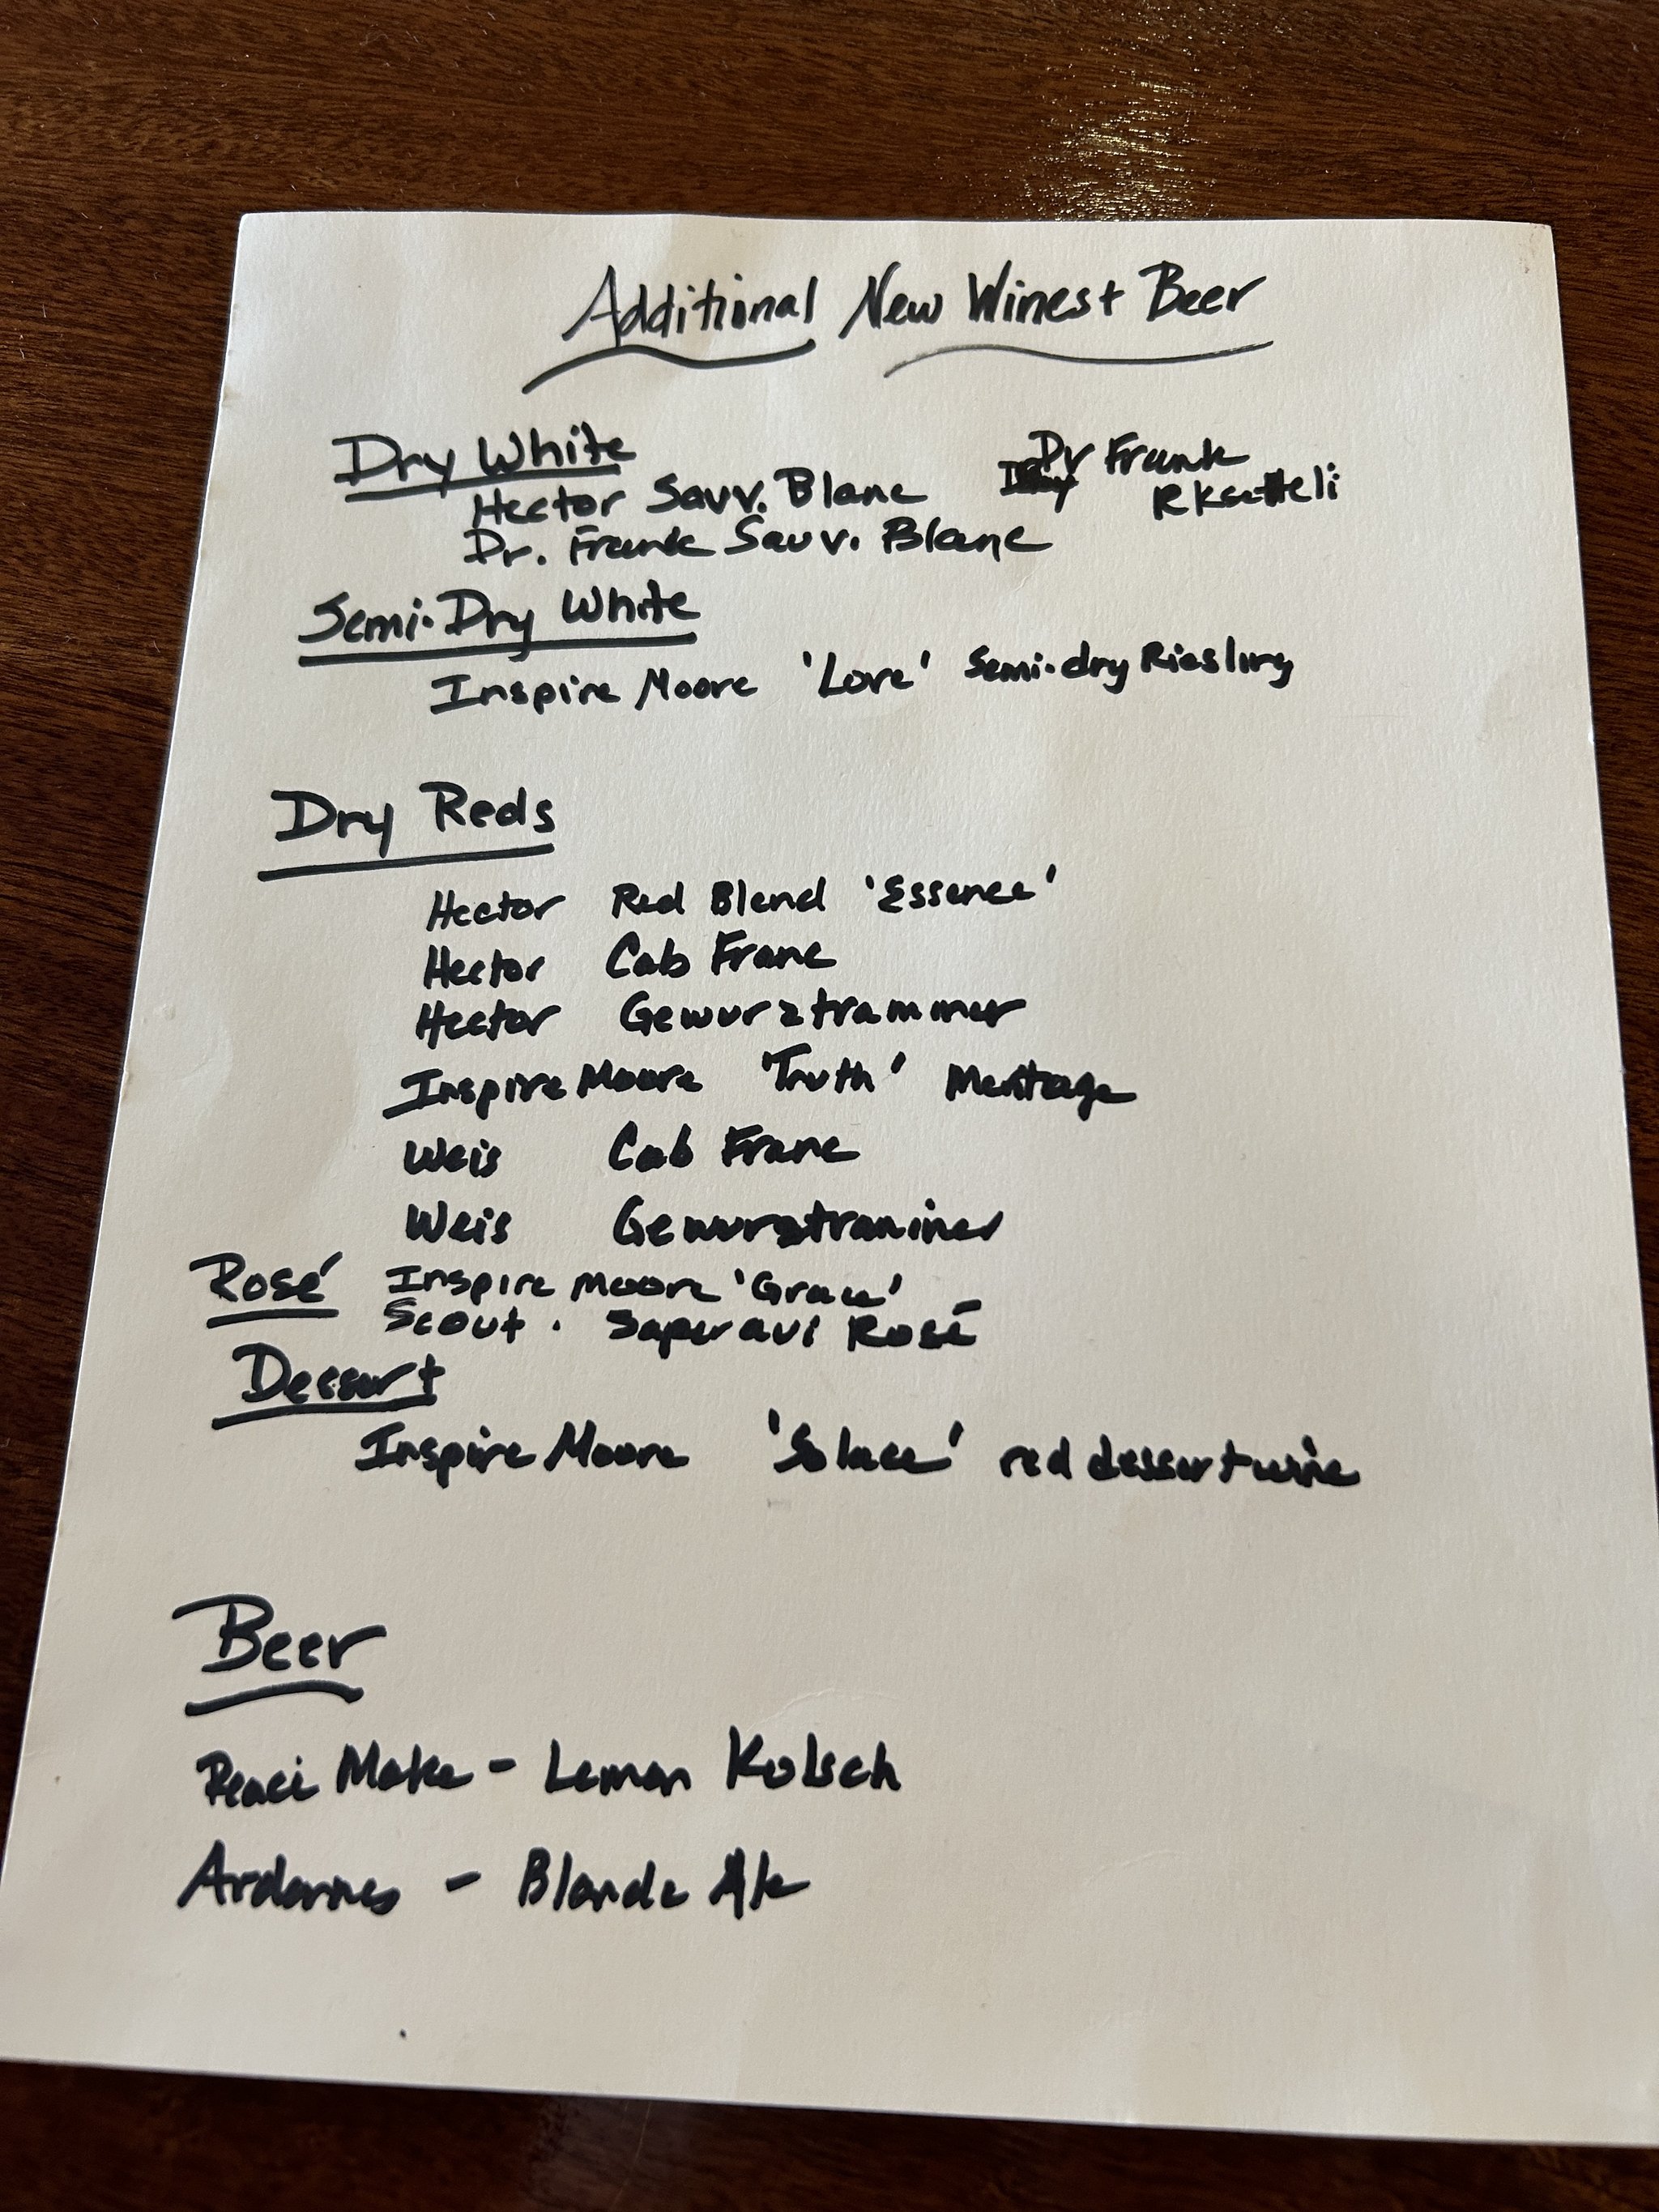 Additional New Wines + Beer
Dry White
Hector Sauv. Blanc
Dr Frank
Rksatteli
Dr. Frank Sauv. Blanc
Semi-Dry White
Inspire Moore 'Love' Semi-dry Riesling
Dry Reds
Hector Red Blend 'Essence'
Hector Cab Franc
Hector Gewurztrammer
Inspire Moore 'Truth' Meritage
Weis Cab Franc
Weis Gewurztraminer
Rosé Inspire Moore 'Grace'
Scout. Saperavi Rosé
Dessert
Inspire Moore 'Solace' red dessert wine
Beer
Make - Lemon Kolsch
Ardennes - Blonde Ale